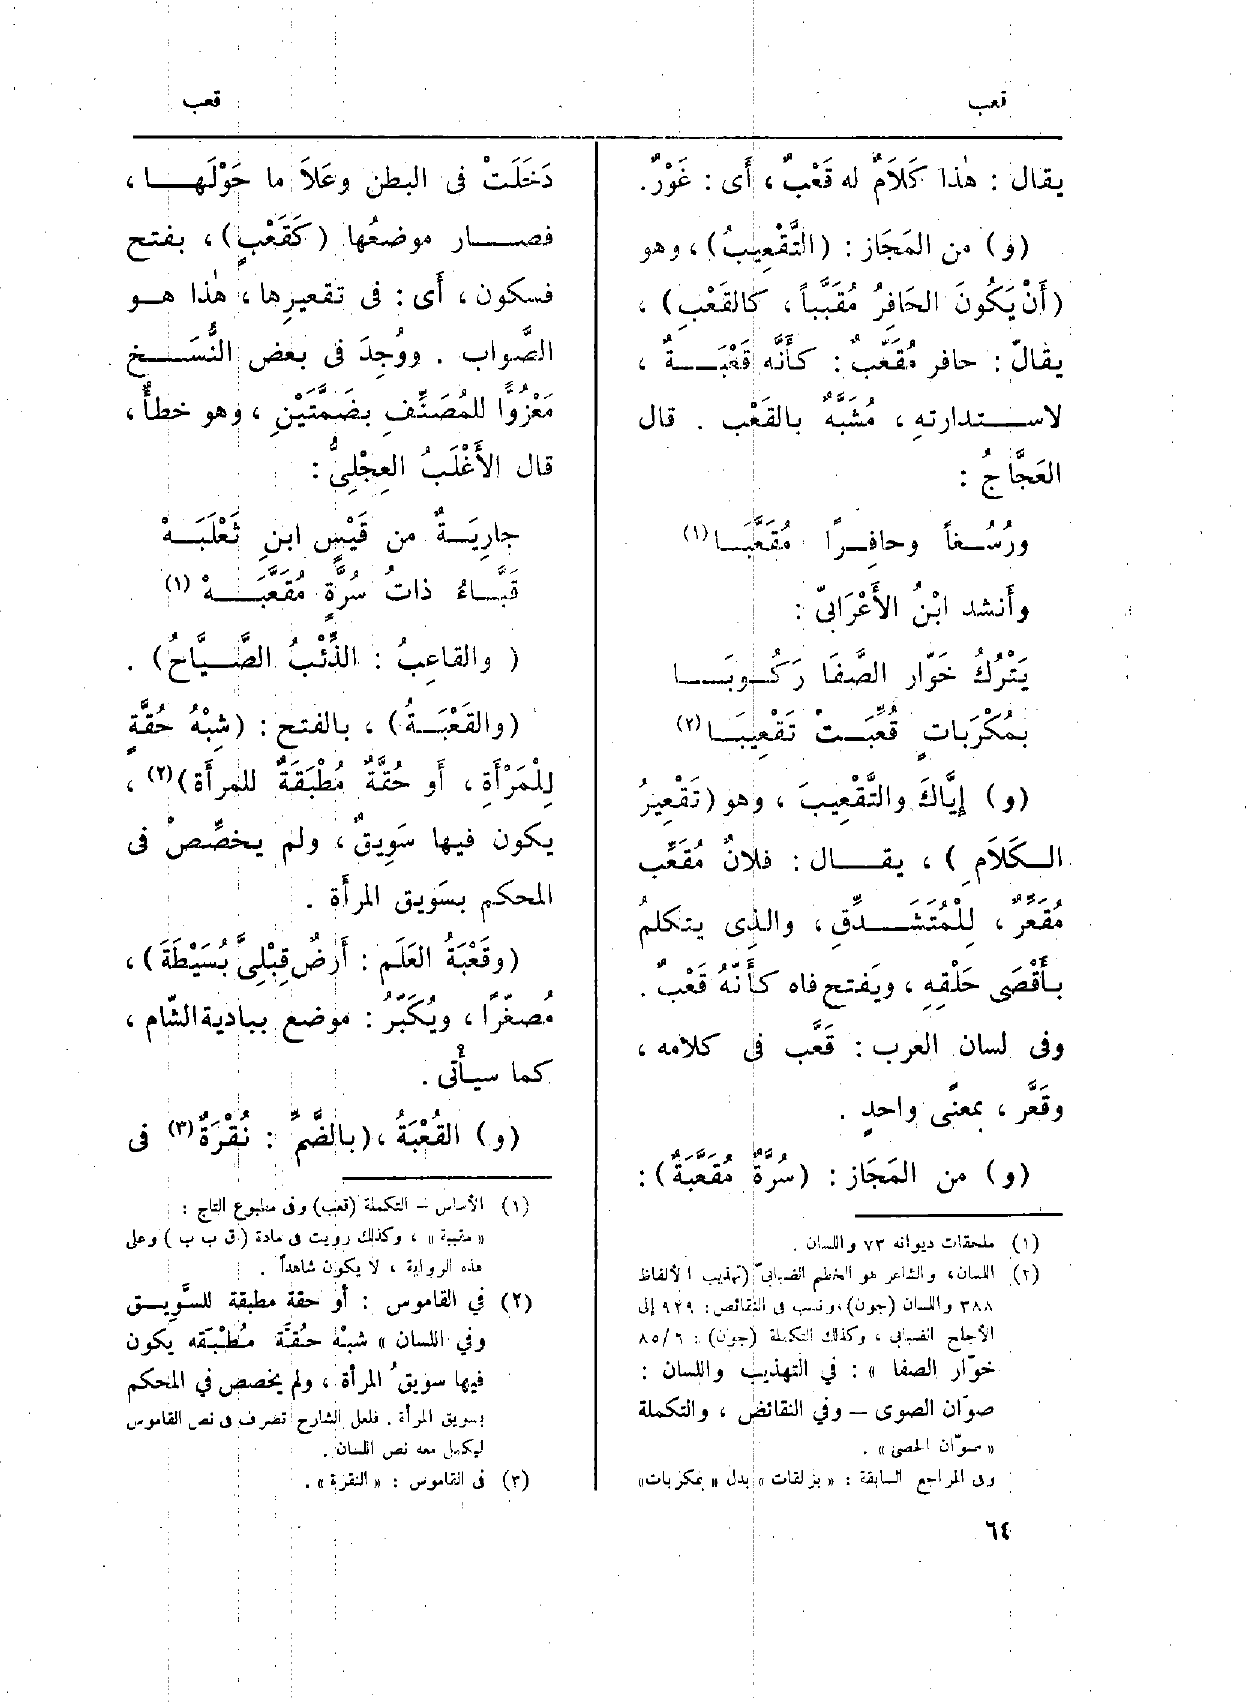 قعب
قعب
يقال : هٰذا كَلَامٌ له قَعْبٌ ، أَى : غَوْرٌ.
(و) من المَجَاز : (التَّقْعِيبُ) ، وهو
(أَنْ يَكُونَ الحَافِرُ مُقَبَّباً ، كالقَعْبِ) ،
يقالُ : حافر مُقَعَّبٌ : كأَنَّه قَعْبَةٌ ،
لاستدارته ، مُشَبَّهٌ بالقَعْب . قال
العَجَّاجُ :
ورُسُغاً وحافِرًا مُقَعَّبَا(١)
وأَنشد ابْنُ الأَعْرَابىّ :
يَتْرُكُ خَوّار الصَّفَا رَكُوبَا
بمُكْرَبَاتٍ قُعِّبَتْ تَقْعِيبَا(٢)
(و) إِيَّاكَ والتَّقْعِيبَ ، وهو (تَقْعِيرُ
الكَلَامِ ) ، يقال : فلانٌ مُقَعِّب
مُقَعِّرٌ ، لِلْمُتَشَدِّقِ ، والذى يتكلم
بأَقْصَى حَلْقِهِ ، ويَفتح فاه كأَنَّهُ قَعْبٌ .
وفى لسان العرب : قَعَّب فى كلامه ،
وقَعَّر ، بمعنًى واحدٍ .
(و) من المَجَاز : (سُرَّةٌ مُقَعَّبَةٌ) :
(١) ملحقات ديوانه ٧٣ واللسان .
(٢) اللسان، والشاعر هو الخطيم الضبابىّ (تهذيب الألفاظ
٣٨٨ واللسان (جون)، ونسب فى النقائض: ٩٢٩ إلى
الأجلح الضبابى ، وكذلك التكملة (جون) : ٦/ ٨٥
خوّار الصفا » : في التهذيب واللسان :
صوّان الصوى – وفي النقائض ، والتكملة
« صوّان الحصى » .
وفى المراجع السابقة : « بزلقات » بدل « بمكربات»
دَخَلَتْ فى البطن وعَلَا ما حَوْلَها ،
فصار موضعُها (كَقَعْبٍ) ، بفتح
فسكون ، أَى : فى تقعيرها ، هٰذا هو
الصَّواب . ووُجِدَ فى بعض النُّسَخ
مَعْزُوًّا للمُصَنِّفِ بضَمَّتَيْنِ ، وهو خطأٌ ،
قال الأَغْلَبُ العِجْلِىُّ :
جارِيَةٌ من قَيْسٍ ابنِ ثَعْلَبَهْ
قَبَّاءُ ذاتُ سُرَّةٍ مُقَعَّبَهْ (١)
( والقاعِبُ : الذِّئْبُ الصَّيَّاحُ) .
(والقَعْبَةُ) ، بالفتح : (شِبْهُ حُقَّةٍ
لِلْمَرْأَةِ ، أَو حُقَّةٌ مُطْبَقَةٌ للمرأَة)(٢) ،
يكون فيها سَوِيقٌ ، ولم يخصِّصْ فى
المحكم بسَويق المرأَة .
(وقَعْبَةُ العَلَمِ : أَرضٌ قِبْلِىَّ بُسَيْطَةَ) ،
مُصَغّرًا ، ويُكَبّرُ : موضع ببادية الشَّام ،
كما سيأتى .
(و) القُعْبَةُ ، (بالضَّمِّ : نُقْرَةٌ(٣) فى
(١) الأساس – التكملة (قعب) وفى مطبوع التاج :
« مقببة » ، وكذلك رويت فى مادة (ق ب ب ) وعلى
هذه الرواية ، لا يكون شاهداً .
(٢) في القاموس : أو حقة مطبقة للسَّويق
وفي اللسان « شبْه حُقَّة مُطْبَقه يكون
فيها سويقُ المرأة ، ولم يخصص في المحكم
بسويق المرأة . فلعل الشارح تصرف فى نص القاموس
ليكمل معه نص اللسان .
(٣) فى القاموس : « النقرة » .
٦٤